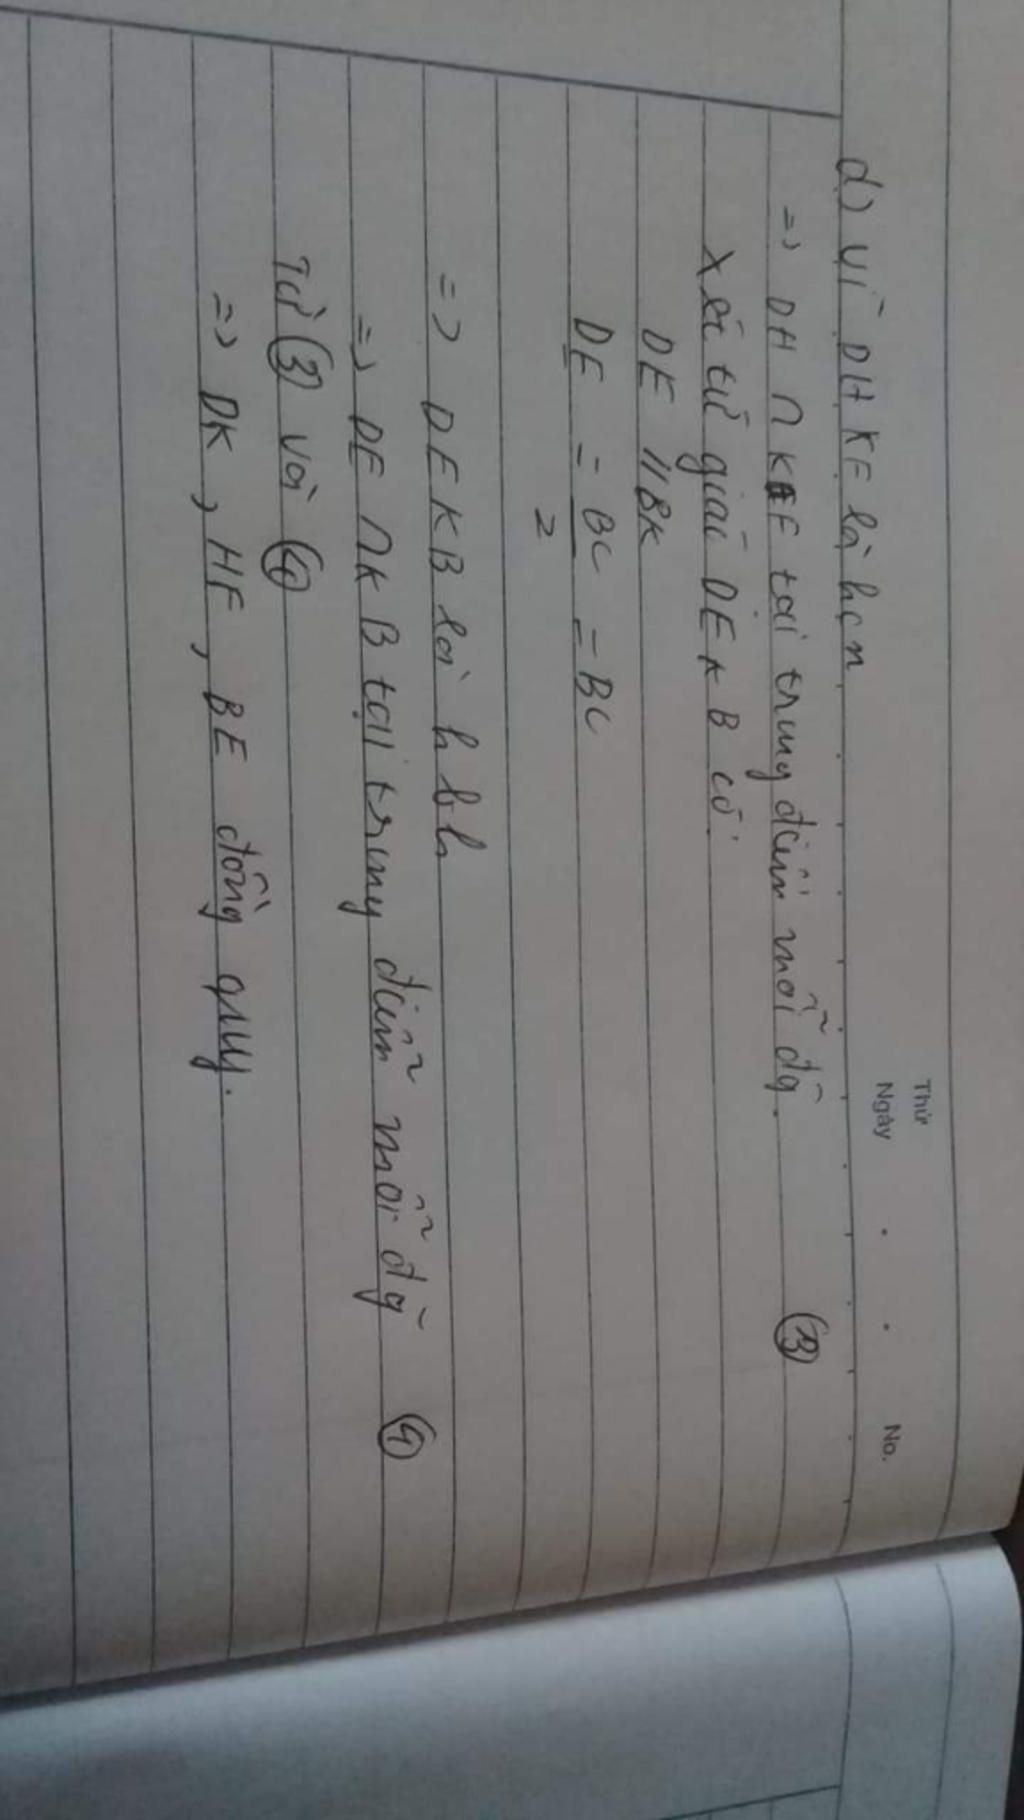 Thứ
Ngày . . No.
d) Vì DHKF là hcn
=> DH ∩ KF tại trung điểm mỗi đg. (3)
Xét tứ giác DEKB có
DE // BK
DE = BC/2 = BC
=> DEKB là hbh
=> DE ∩ KB tại trung điểm mỗi đg (4)
Từ (3) và (4)
=> DK, HF, BE đồng quy.